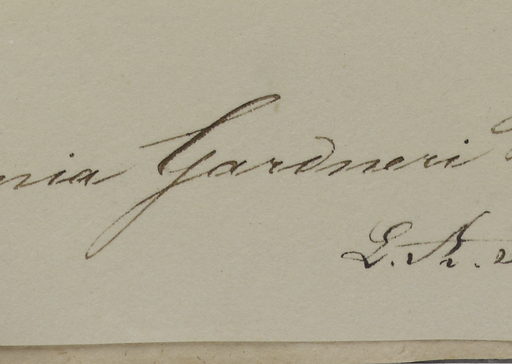 nia Gardneri
L. R.